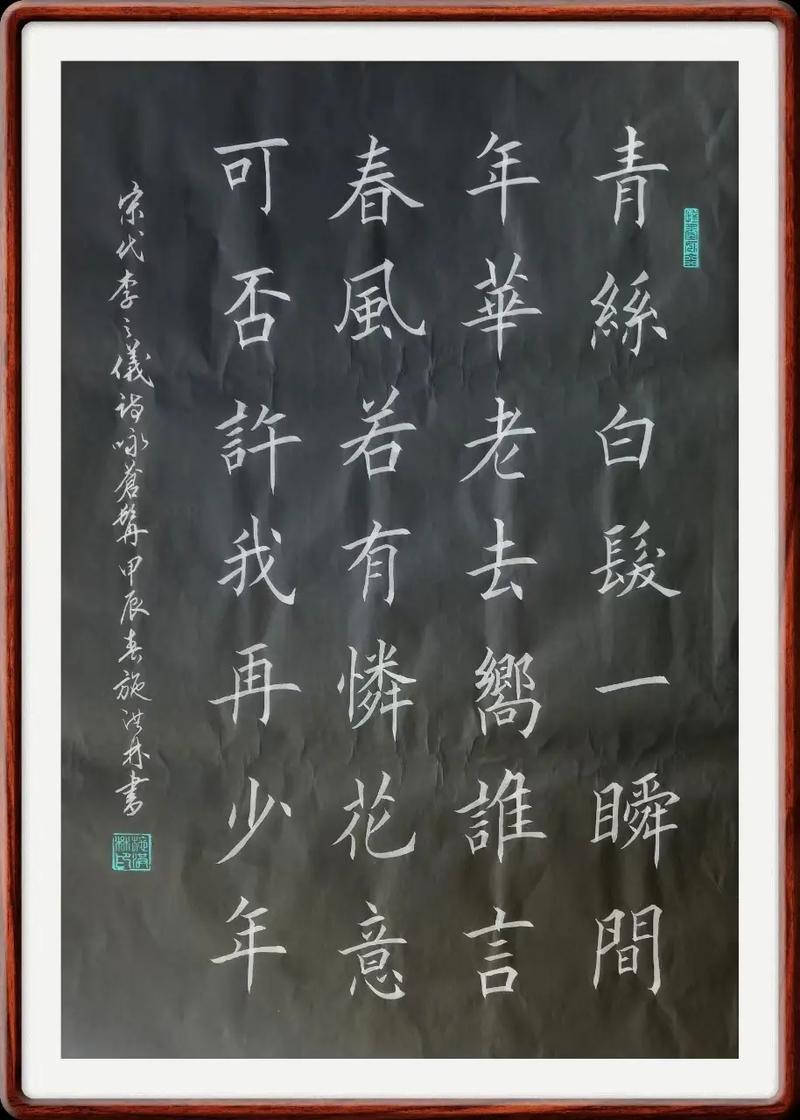 青絲白髮一瞬間
年華老去嚮誰言
春風若有憐花意
可否許我再少年
宋代李之儀詩咏蒼髯甲辰春施洪林書